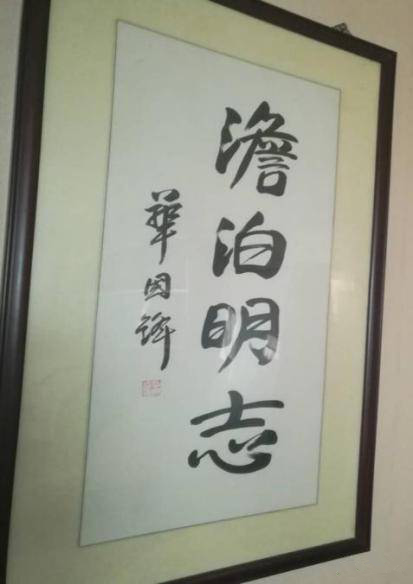 澹泊明志
華国鋒